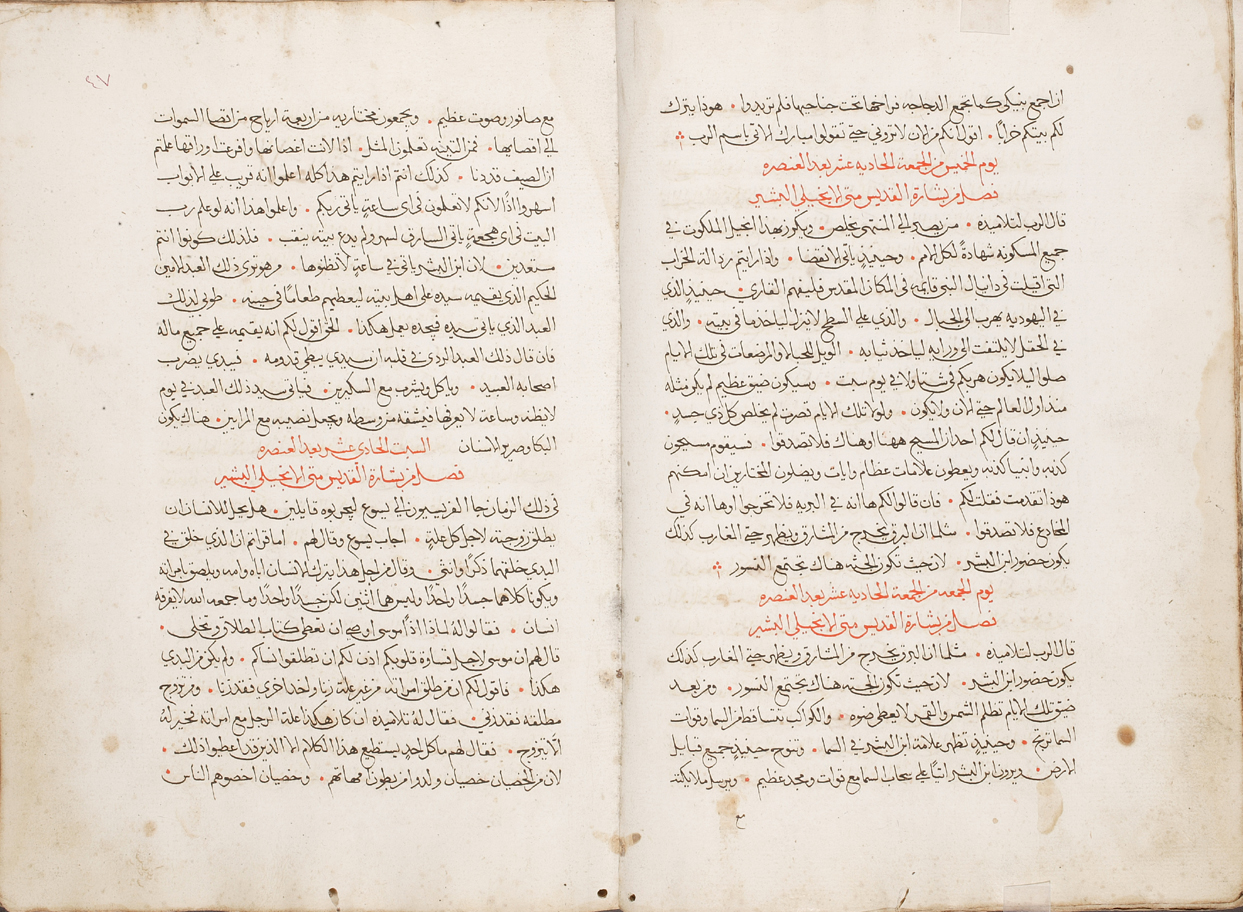 ان اجمع بنيكي كما تجمع الدجاجه فراخها تحت جناحيها فلم تريدوا • هوذا يترك
لكم بيتكم خرابًا • اقول لكم من الان لا تروني حتي تقولوا مبارك الاتي باسم الرب
يوم الخميس من الجمعة الحاديه عشر بعد العنصره
فصل من بشارة القديس متى الانجيلي البشير
قال الرب لتلاميذه • من يصبر الي المنتهى يخلص • ويكرز بهذا انجيل الملكوت في
جميع المسكونه شهادةً لكل الامم • وحينيذٍ ياتي الانقضا • واذا رايتم رذالة الخراب
التي اقيلت في دانيال النبي قايمه في المكان المقدس فليفهم القاري • حينيذٍ الذي
في اليهوديه يهرب الي الجبال • والذي على السطح لا ينزل لياخذ ما في بيته • والذي
في الحقل لا يلتفت الى ورايه لياخذ ثيابه • الويل للحبالا والمرضعات في تلك الايام
صلوا ليلا يكون هربكم في شتا ولا في يوم سبت • وسيكون ضيق عظيم لم يكن مثله
منذ اول العالم حتي الان ولا يكون • ولولا تلك الايام قصرت لم يخلص كل ذي جسدٍ •
حينيذٍ ان قال لكم احد ان المسيح ههنا او هناك فلا تصدقوا • فسيقوم مسيحون
كذبه وانبيا كذبه ويعطون علامات عظام وايات ويضلون المختارين ان امكنهم
هوذا تقدمت فقلت لكم • فان قالوا لكم ها انه في البريه فلا تخرجوا او ها انه في
المخادع فلا تصدقوا • مثلما ان البرق يخرج من المشارق ويظهر حتي المغارب كذلك
يكون حضور ابن البشر • لان حيث تكون الجثه هناك تجتمع النسور
يوم الجمعه من الجمعة الحاديه عشر بعد العنصره
فصل من بشارة القديس متى الانجيلي البشير
قال الرب لتلاميذه • مثلما ان البرق يخرج من المشارق ويظهر حتي المغارب كذلك
يكون حضور ابن البشر • لان حيث تكون الجثه هناك تجتمع النسور • ومن بعد
ضيق تلك الايام تظلم الشمس والقمر لا يعطي ضوه • والكواكب تتساقط من السما وقوات
السما ترتج • وحينيذٍ تظهر علامة ابن البشر في السما • وتنوح حينيذٍ جميع قبايل
الارض • ويرون ابن البشر اتيًا علي سحاب السما مع قوات ومجد عظيم • ويرسل ملايكته
مع
٤٧
مع صافور وصوت عظيم • ويجمعون مختاريه من اربعة ارياح من اقصا السموات
الي اقصايها • فمن التينه تعلمون المثل • اذا لانت اغصانها وافرعت اوراقها علمتم
ان الصيف قد دنا • كذلك انتم اذا رايتم هذا كله اعلموا انه قريب على الابواب
اسهروا اذًا لانكم لا تعلمون في اي ساعةٍ ياتي ربكم • واعلموا هذا انه لو علم رب
البيت في اي هجعةٍ ياتي السارق لسهر ولم يدع بيته ينقب • فلذلك كونوا انتم
مستعدين • لان ابن البشر ياتي في ساعةٍ لا تظنوها • من هو تري ذلك العبد الامين
الحكيم الذي يقيمه سيده على اهل بيته ليعطيهم طعامًا في حينه • طوبي لذلك
العبد الذي ياتي سيده فيجده يعمل هكذا • الحق اقول لكم انه يقيمه علي جميع ماله
فان قال ذلك العبد الردي في قلبه ان سيدي يبطي قدومه • فيبدي يضرب
اصحابه العبيد • وياكل ويشرب مع السكيرين • فياتي سيد ذلك العبد في يوم
لا يظنه وساعة لا يعرفها فيشقه من وسطه ويجعل نصيبه مع المرايين • هناك يكون
البكا وصرير الاسنان السبت الحادي عشر بعد العنصره
فصل من بشارة القديس متى الانجيلي البشير
في ذلك الزمان جا الفريسيون الي يسوع ليجربوه قايلين • هل يحل للانسان ان
يطلق زوجته لاجل كل علةٍ • اجاب يسوع وقال لهم • اما قراتم ان الذي خلق في
البدي خلقهما ذكرًا وانثي • وقال من اجل هذا يترك الانسان اباه وامه ويلصق بامراته
ويكونا كلاهما جسدًا واحدًا وليس هما اثنين لكن جسدًا واحدًا وما جمعه الله لا يفرقه
انسان • فقالوا لهُ لماذا اذًا موسى اوصي ان تعطي كتاب الطلاق وتخلي •
قال لهم ان موسى لاجل قساوة قلوبكم اذن لكم ان تطلقوا نساكم • ولم يكن من البدي
هكذا • فاقول لكم ان من طلق امراته من غير علة زنا واخذ اخري فقد زنا • ومن تزوج
مطلقه فقد زني • فقال لهُ تلاميذه ان كان هكذا علة الرجل مع امراته فخير لهُ
الا يتزوج • فقال لهم ما كل احدٍ يستطيع هذا الكلام الا الذين قد اعطيوا ذلك •
لان من الخصيان خصيان ولدوا من بطون امهاتهم • وخصيان اخصوهم الناس •